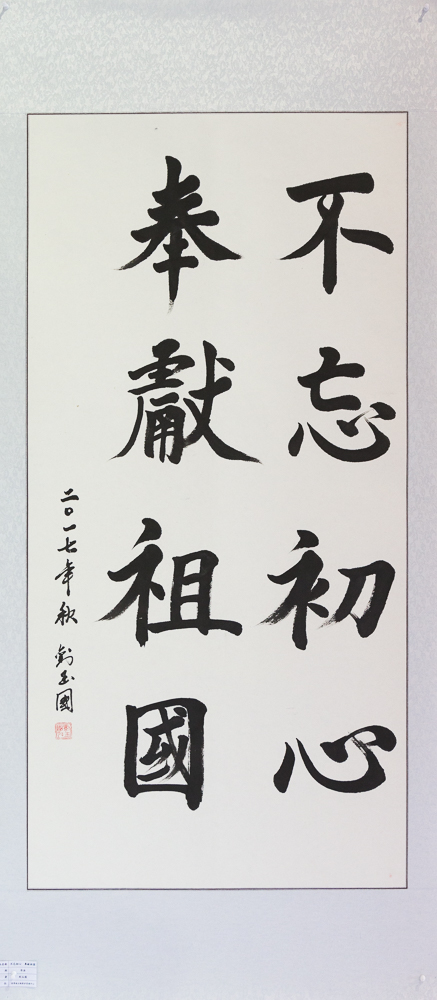 不忘初心
奉獻祖國
二〇一七年秋 劉玉國